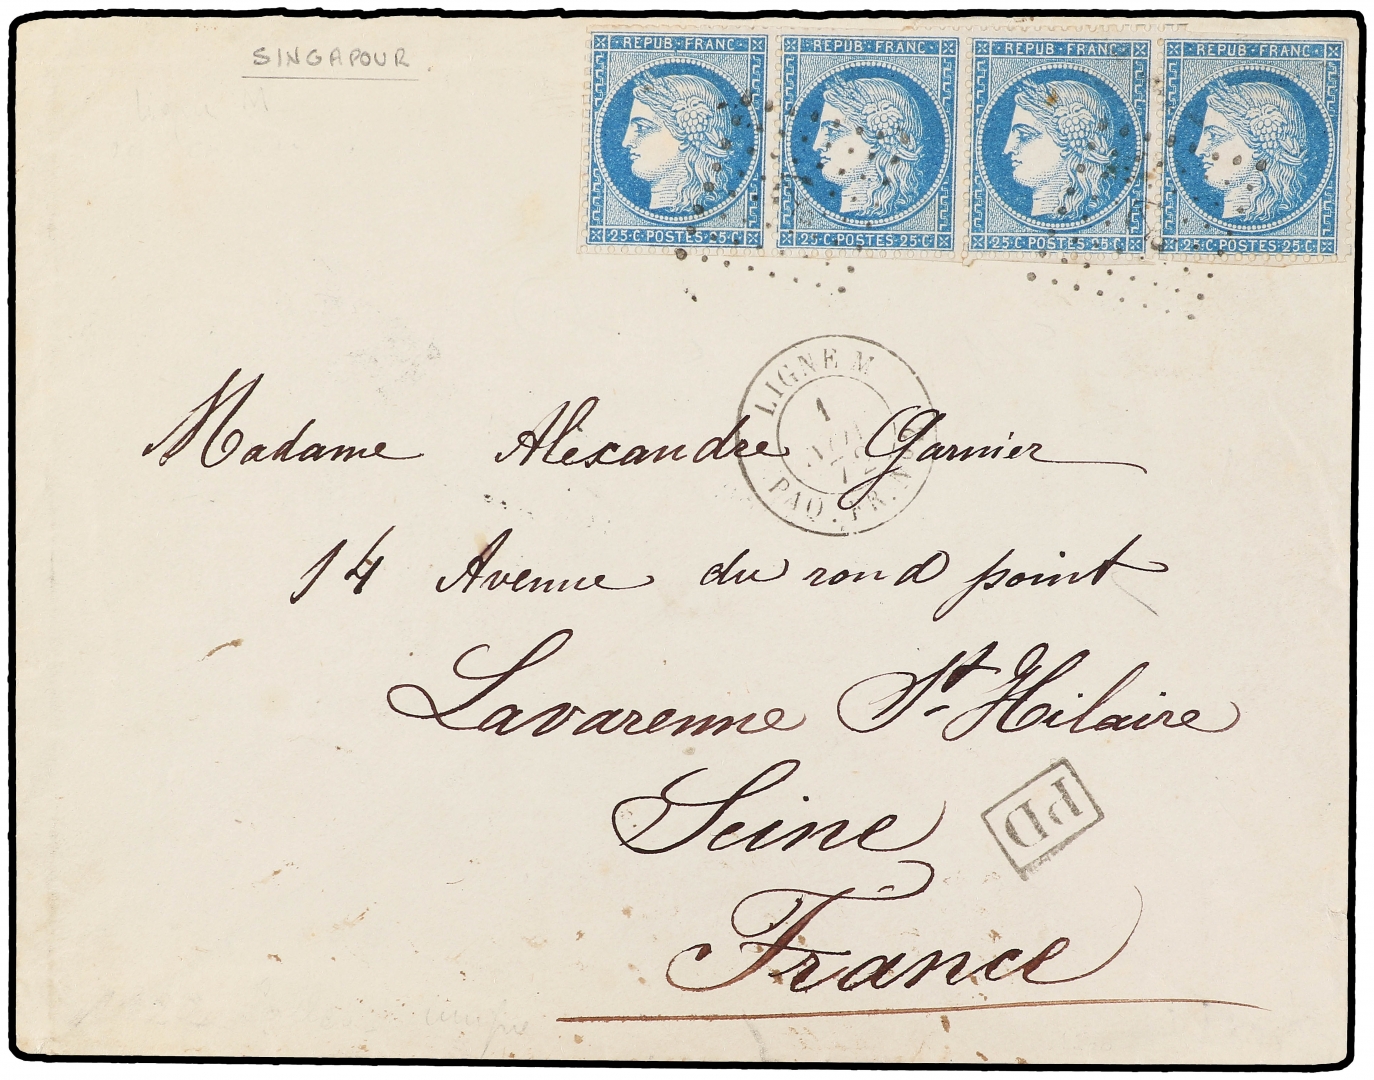 SINGAPOUR
REPUB. FRANC.
25·C·POSTES·25·C
REPUB. FRANC.
25·C·POSTES·25·C
REPUB. FRANC.
25·C·POSTES·25·C
REPUB. FRANC.
25·C·POSTES·25·C
LIGNE M
1
PAQ. FR. N
Madame Alexandre Garnier
14 Avenue du rond point
Lavarenne St-Hilaire
Seine
PD
France